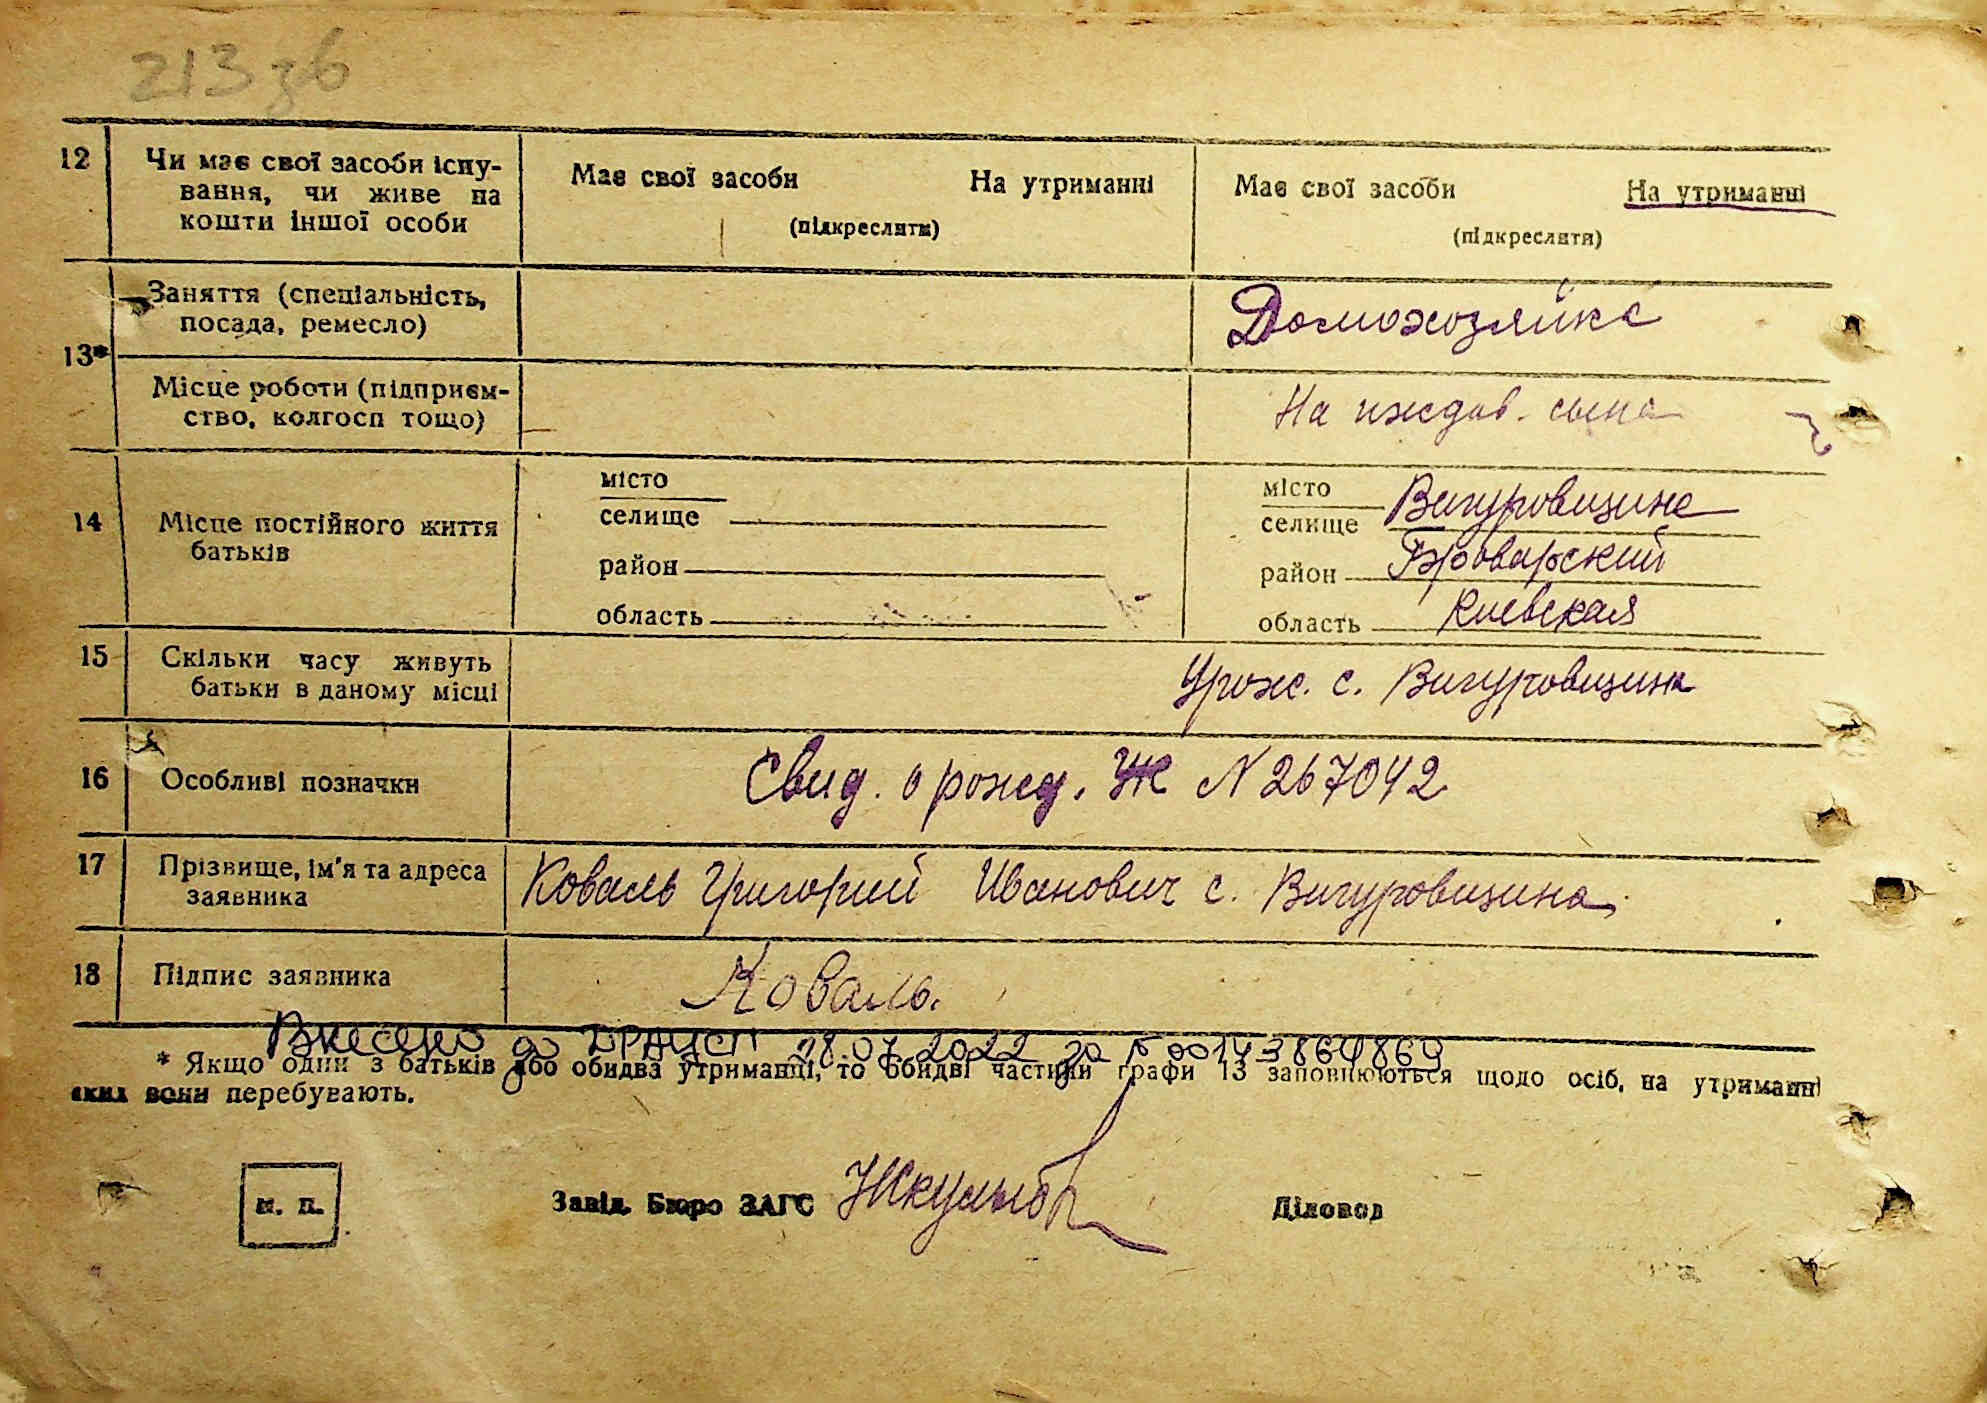 213 зв
12 Чи має свої засоби існу-
вання, чи живе на
кошти іншої особи
Має свої засоби На утриманні
(підкреслити)
Має свої засоби На утриманні
(підкреслити)
13*
Заняття (спеціальність,
посада, ремесло)
Домохозяйка
Місце роботи (підприєм-
ство, колгосп тощо)
На иждив. сына
14 Місце постійного життя
батьків
місто
селище
район
область
місто
селище Вигуровщина
район Броварский
область Киевская
15 Скільки часу живуть
батьки в даному місці
Урож. с. Вигуровщина
16 Особливі позначки
Свид. о рожд. ЖЖ N 267042
17 Прізвище, ім'я та адреса
заявника
Коваль Григорий Иванович с. Вигуровщина
18 Підпис заявника
Коваль.
Внесено до ДРАЦСГ 28.07.2022 за № 00143864869
* Якщо один з батьків або обидва утриманці, то обидві частини графи 13 заповнюються щодо осіб, на утриманні
яких вони перебувають.
М. П.
Завід. Бюро ЗАГС
Діловод